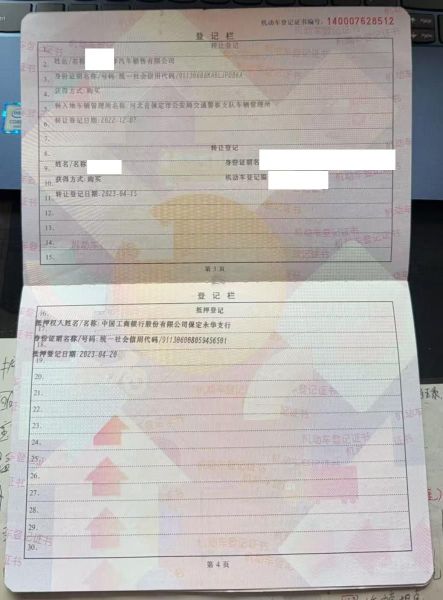 机动车登记证书编号: 140007628512
登记栏
1. 转让登记
2. 姓名/名称 汽车销售有限公司
3. 身份证明名称/号码: 统一社会信用代码/
4. 获得方式: 购买
5. 转入地车辆管理所名称: 河北省保定市公安局交通警察支队车辆管理所
6. 转让登记日期: 2022-12-07
7.
8. 转让登记
9. 姓名/名称 身份证明名
10. 获得方式: 购买 机动车登记编
11. 转让登记日期: 2023-04-15
12.
13.
14.
15.
第 3 页
登记栏
16. 抵押登记
17. 抵押权人姓名/名称: 中国工商银行股份有限公司保定永华支行
18. 身份证明名称/号码: 统一社会信用代码/
19. 抵押登记日期: 2023-04-20
20.
21.
22.
23.
24.
25.
26.
27.
28.
29.
30.
第 4 页
机动车登记证书